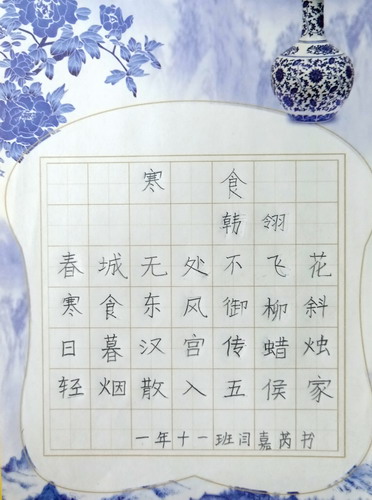 寒食
韩翃
春城无处不飞花
寒食东风御柳斜
日暮汉宫传蜡烛
轻烟散入五侯家
一年十一班闫嘉芮书